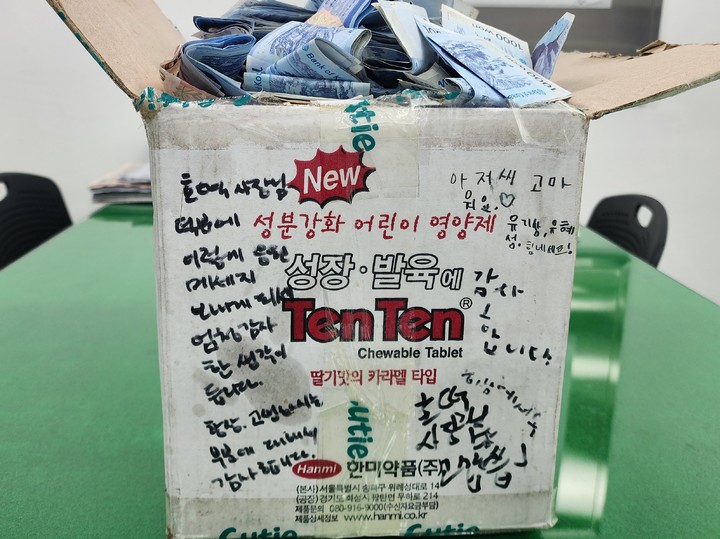 1000
Bank of K
Cutie
New
호떡 사장님
덕분에
이렇게 응원
메세지
보내게 돼서
엄청 감사
한 생각이
듭니다.
항상 고생하시는
부분에 대해서
감사드립니다.
아저씨 고마
워요♡
유가방, 유혜
성, 힘내세요!
성분강화 어린이 영양제
성장·발육에
TenTen®
Chewable Tablet
딸기맛의 카라멜 타입
감사
합니다!
호떡
사장님
고맙습니
Cutie
Hanmi 한미약품(주)
(본사)서울특별시 송파구 위례성대로 14
(공장)경기도 화성시 팔탄면 무하로 214
제품문의 080-916-9000(수신자요금부담)
제품상세정보 www.hanmi.co.kr
Cutie
Cutie